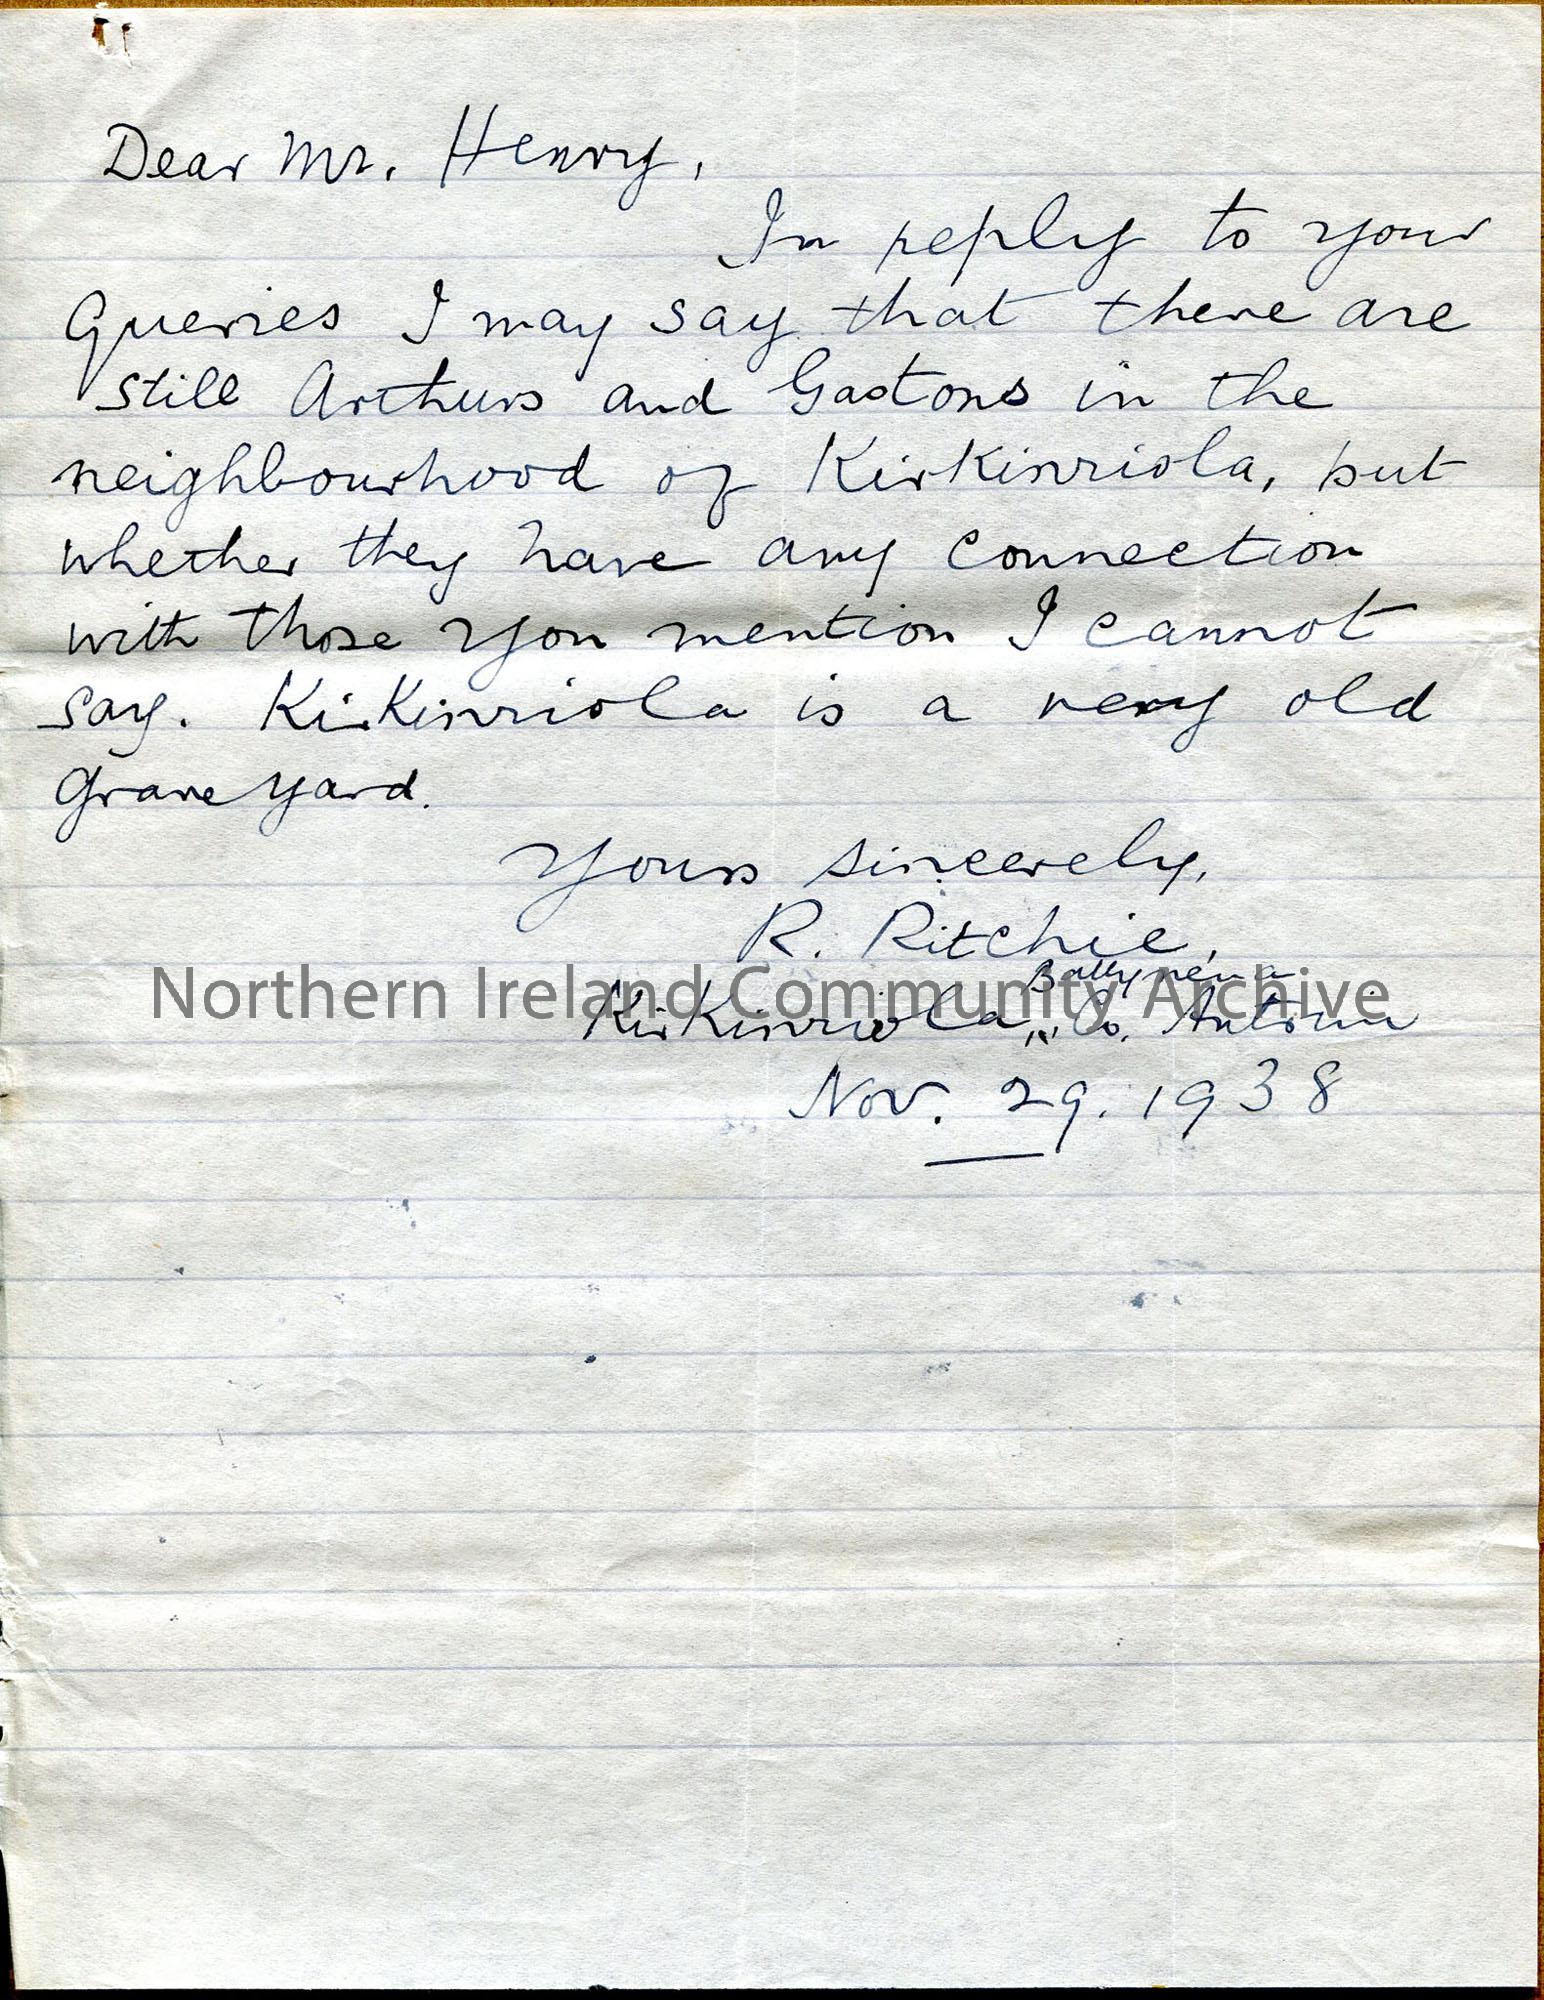 Dear Mr. Henry,
In reply to your
Queries I may say that there are
still Arthurs and Gastons in the
neighbourhood of Kirkinriola, but
whether they have any connection
with those you mention I cannot
say. Kirkinriola is a very old
Graveyard.
Yours sincerely,
R. Ritchie,
Ballymena
Kirkinriola, Co. Antrim
Nov. 29. 1938
Northern Ireland Community Archive